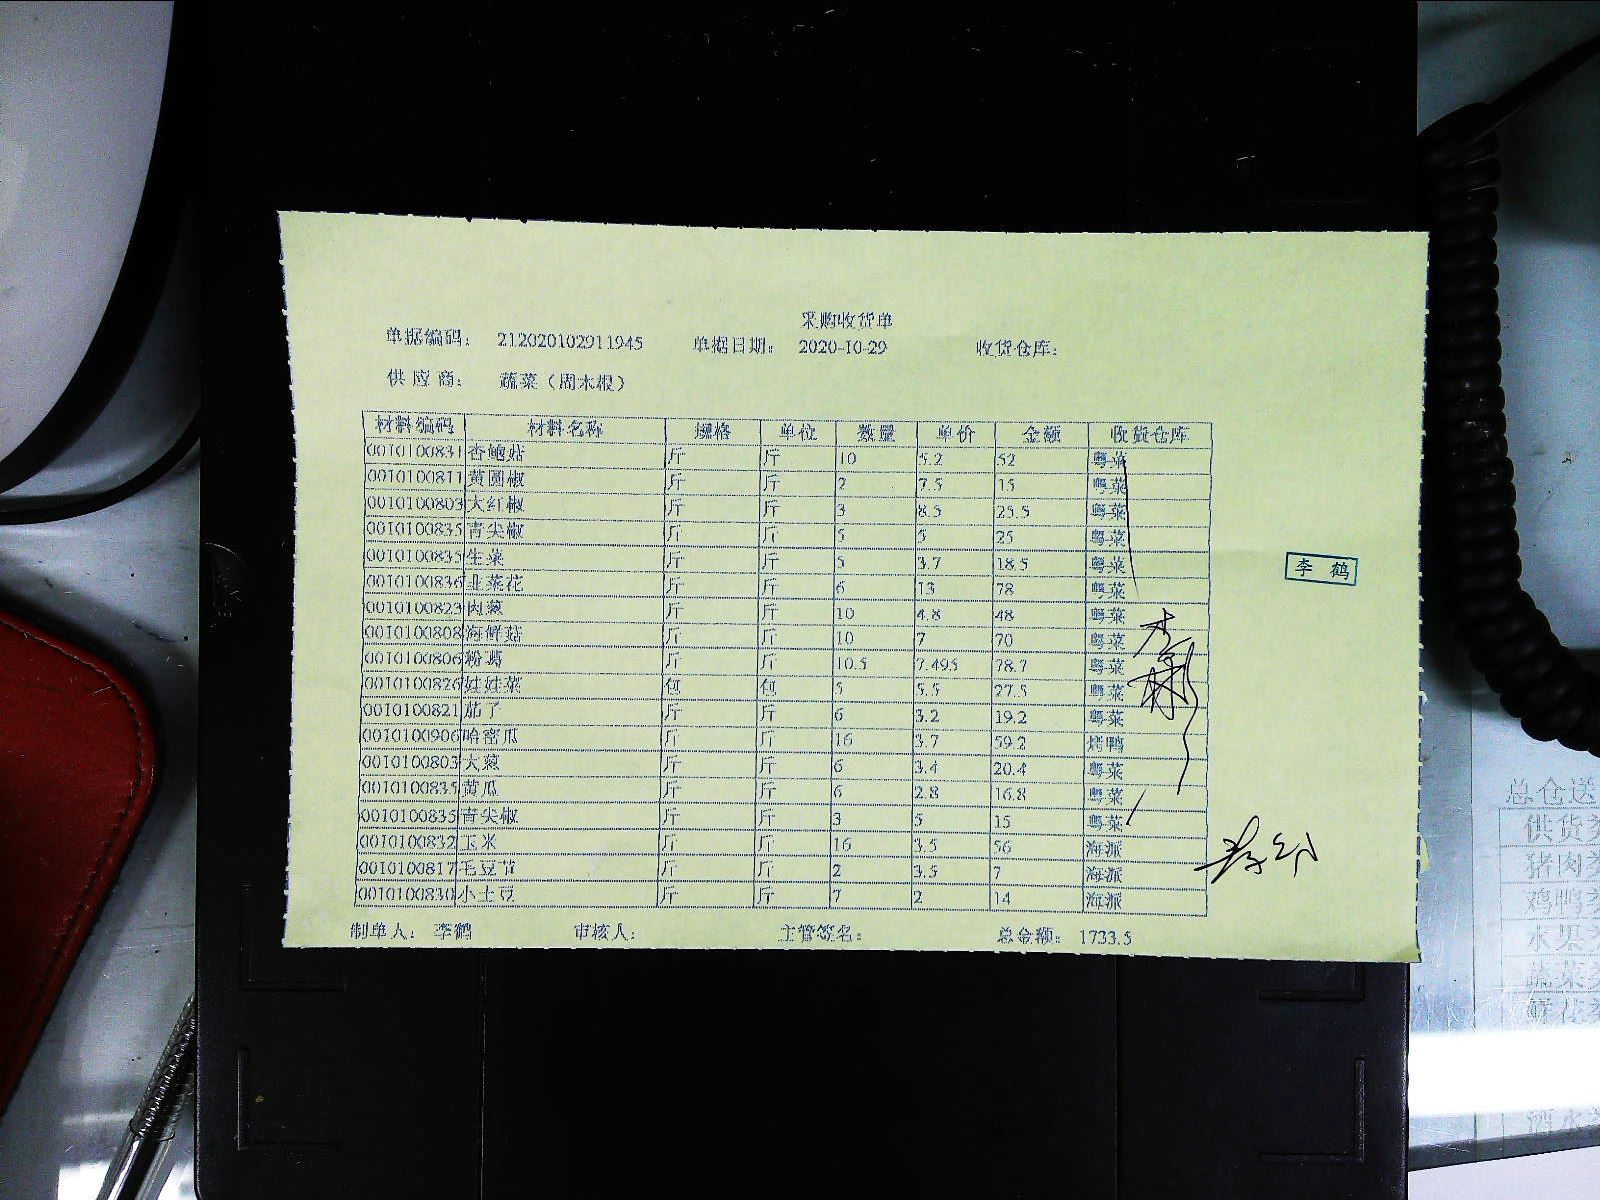 采购收货单
单据编码： 212020102911945 单据日期： 2020-10-29 收货仓库：
供 应 商： 蔬菜（周木根）
材料编码 材料名称 规格 单位 数量 单价 金额 收货仓库
0010100831 杏鲍菇 斤 斤 10 5.2 52 粤菜
0010100811 黄圆椒 斤 斤 2 7.5 15 粤菜
0010100803 大红椒 斤 斤 3 8.5 25.5 粤菜
0010100835 青尖椒 斤 斤 5 5 25 粤菜
0010100835 生菜 斤 斤 5 3.7 18.5 粤菜
0010100836 韭菜花 斤 斤 6 13 78 粤菜
0010100823 肉葱 斤 斤 10 4.8 48 粤菜
0010100808 海鲜菇 斤 斤 10 7 70 粤菜
0010100806 粉葛 斤 斤 10.5 7.495 78.7 粤菜
0010100826 娃娃菜 包 包 5 5.5 27.5 粤菜
0010100821 茄子 斤 斤 6 3.2 19.2 粤菜
0010100906 哈密瓜 斤 斤 16 3.7 59.2 烤鸭
0010100803 大葱 斤 斤 6 3.4 20.4 粤菜
0010100835 黄瓜 斤 斤 6 2.8 16.8 粤菜
0010100835 青尖椒 斤 斤 3 5 15 粤菜
0010100832 玉米 斤 斤 16 3.5 56 海派
0010100817 毛豆节 斤 斤 2 3.5 7 海派
0010100830 小土豆 斤 斤 7 2 14 海派
制单人： 李鹤 审核人： 主管签名： 总金额： 1733.5
李 鹤
总仓送
供货
猪肉
鸡鸭
水果
蔬菜
酒水